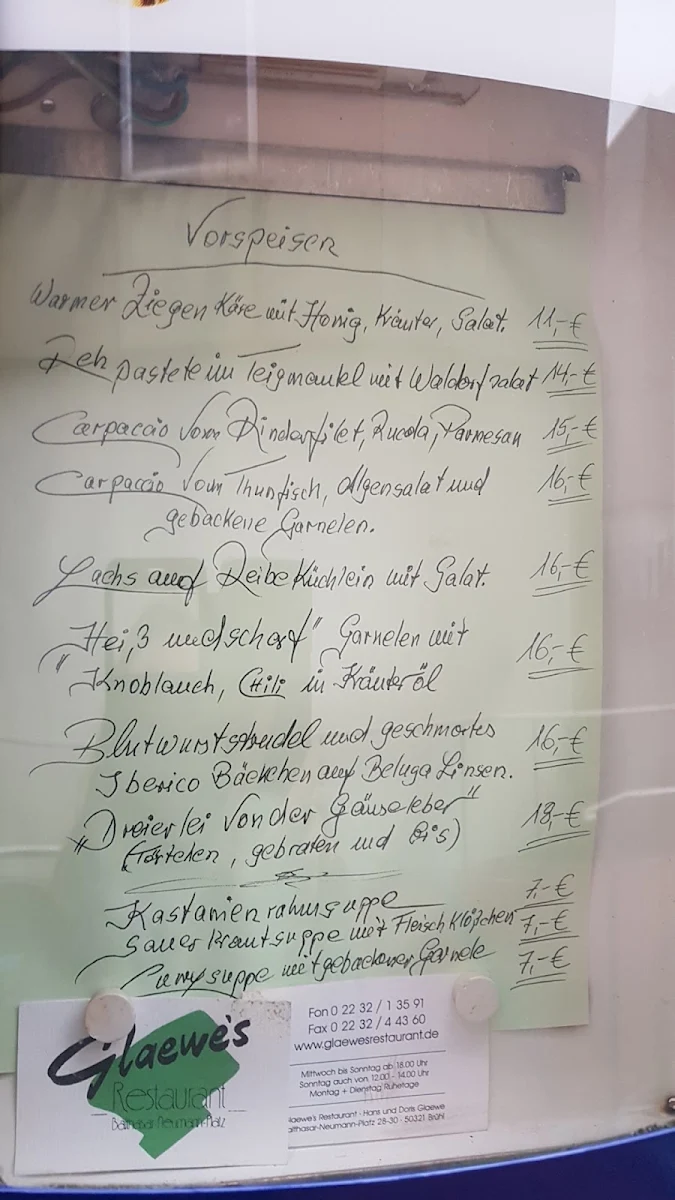 Vorspeisen
Warmer Ziegen Käse mit Honig, Kräuter, Salat. 11,-€
Rehpastete im Teigmantel mit Waldorfsalat 14,-€
Carpaccio vom Rinderfilet, Rucola, Parmesan 15,-€
Carpaccio vom Thunfisch, Algensalat und 16,-€
gebackene Garnelen.
Lachs auf Reibeküchlein mit Salat. 16,-€
„Heiß und scharf" Garnelen mit 16,-€
Knoblauch, Chili in Kräuteröl
Blutwurststrudel und geschmortes 16,-€
Iberico Bäckchen auf Beluga Linsen.
„Dreierlei von der Gänseleber" 18,-€
(Törtchen, gebraten und Eis)
Kastanienrahmsuppe 7,-€
Sauerkrautsuppe mit Fleischklößchen 7,-€
Currysuppe mit gebackener Garnele 7,-€
Glaewe's
Restaurant
Balthasar Neumann-Platz
Fon 0 22 32 / 1 35 91
Fax 0 22 32 / 4 43 60
www.glaewesrestaurant.de
Mittwoch bis Sonntag ab 18.00 Uhr
Sonntag auch von 12.00 - 14.00 Uhr
Montag + Dienstag Ruhetage
Glaewe's Restaurant · Hans und Doris Glaewe
althasar-Neumann-Platz 28-30 · 50321 Brühl